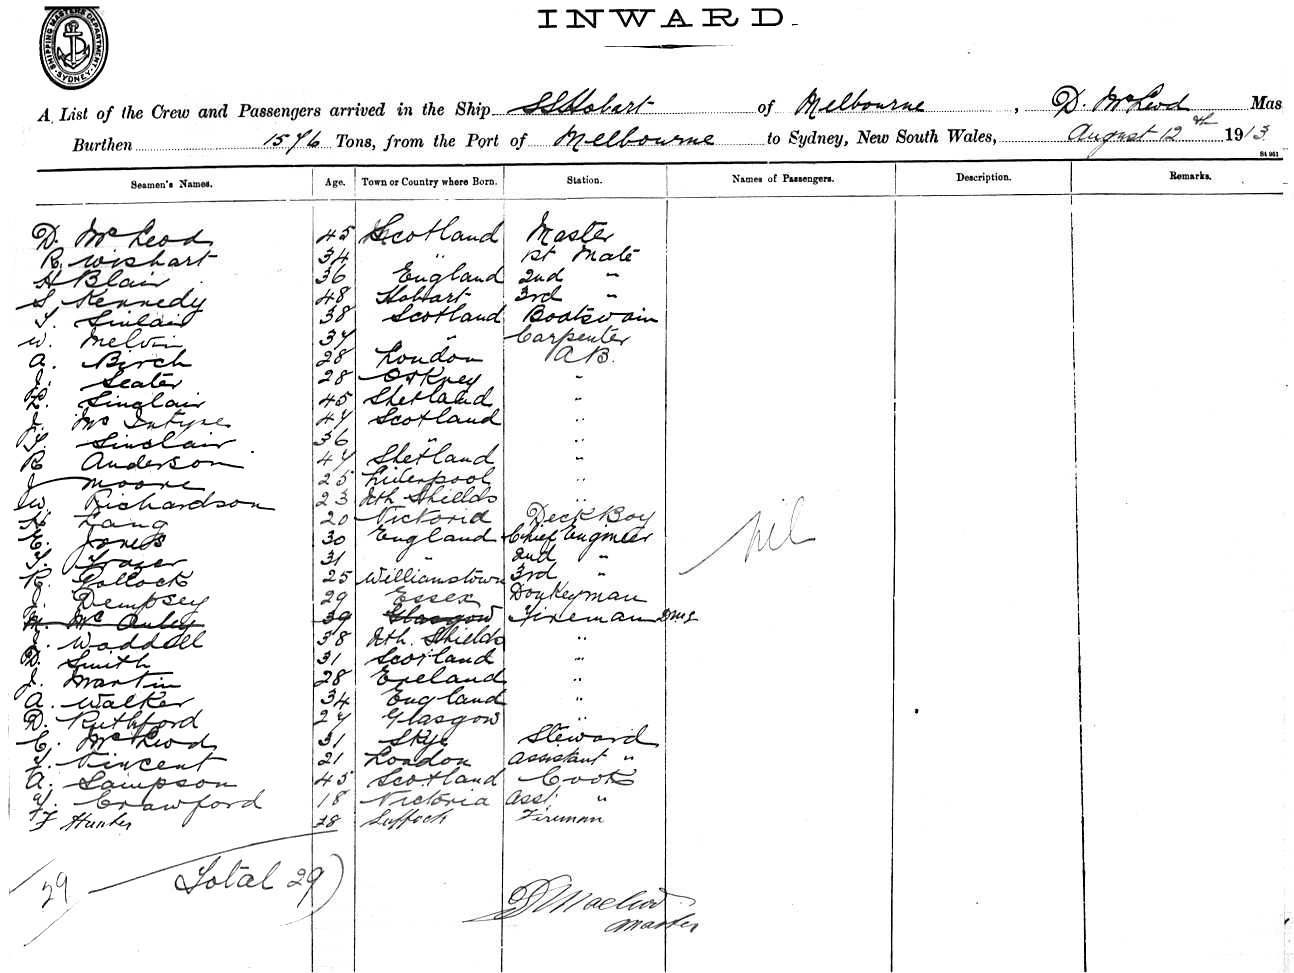 INWARD.
SHIPPING MASTERS DEPARTMENT SYDNEY
A List of the Crew and Passengers arrived in the Ship SS Hobart of Melbourne, D. McLeod Mas
Burthen 1576 Tons, from the Port of Melbourne to Sydney, New South Wales, August 12th 1913
84961
Seamen's Names. Age. Town or Country where Born. Station. Names of Passengers. Description. Remarks.
D. McLeod 45 Scotland Master
R. Wishart 34 " 1st Mate
H Blair 36 England 2nd "
S Kennedy 48 Hobart 3rd "
Sinlair 38 Scotland Boatswain
W. Melvin 34 " Carpenter
A. Birch 28 London AB.
J. Seater 28 Orkney "
L. Sinclair 45 Shetland "
J. McIntyre 44 Scotland "
Sinclair 36 " "
R Anderson 44 Shetland "
J Moore 25 Liverpool "
W. Richardson 23 Nth Shields "
Lang 20 Victoria Deck Boy
E. Jones 30 England Chief Engineer
Frazer 31 " 2nd "
R. Pollock 25 Williamstown 3rd "
J. Dempsey 29 Essex Donkeyman
M. McAuley 39 Glasgow Fireman
J. Waddell 38 Nth. Shields "
D. Smith 31 Scotland "
J. Martin 28 Ireland "
A. Walker 34 England "
D. Ruthford 27 Glasgow "
C. McLeod 31 Skye Steward
Vincent 21 London Assistant "
A. Sampson 45 Scotland Cook
Crawford 18 Victoria Asst "
F Hunter 28 Suffock Fireman
nil
29 Total 29
D Macleod
Master